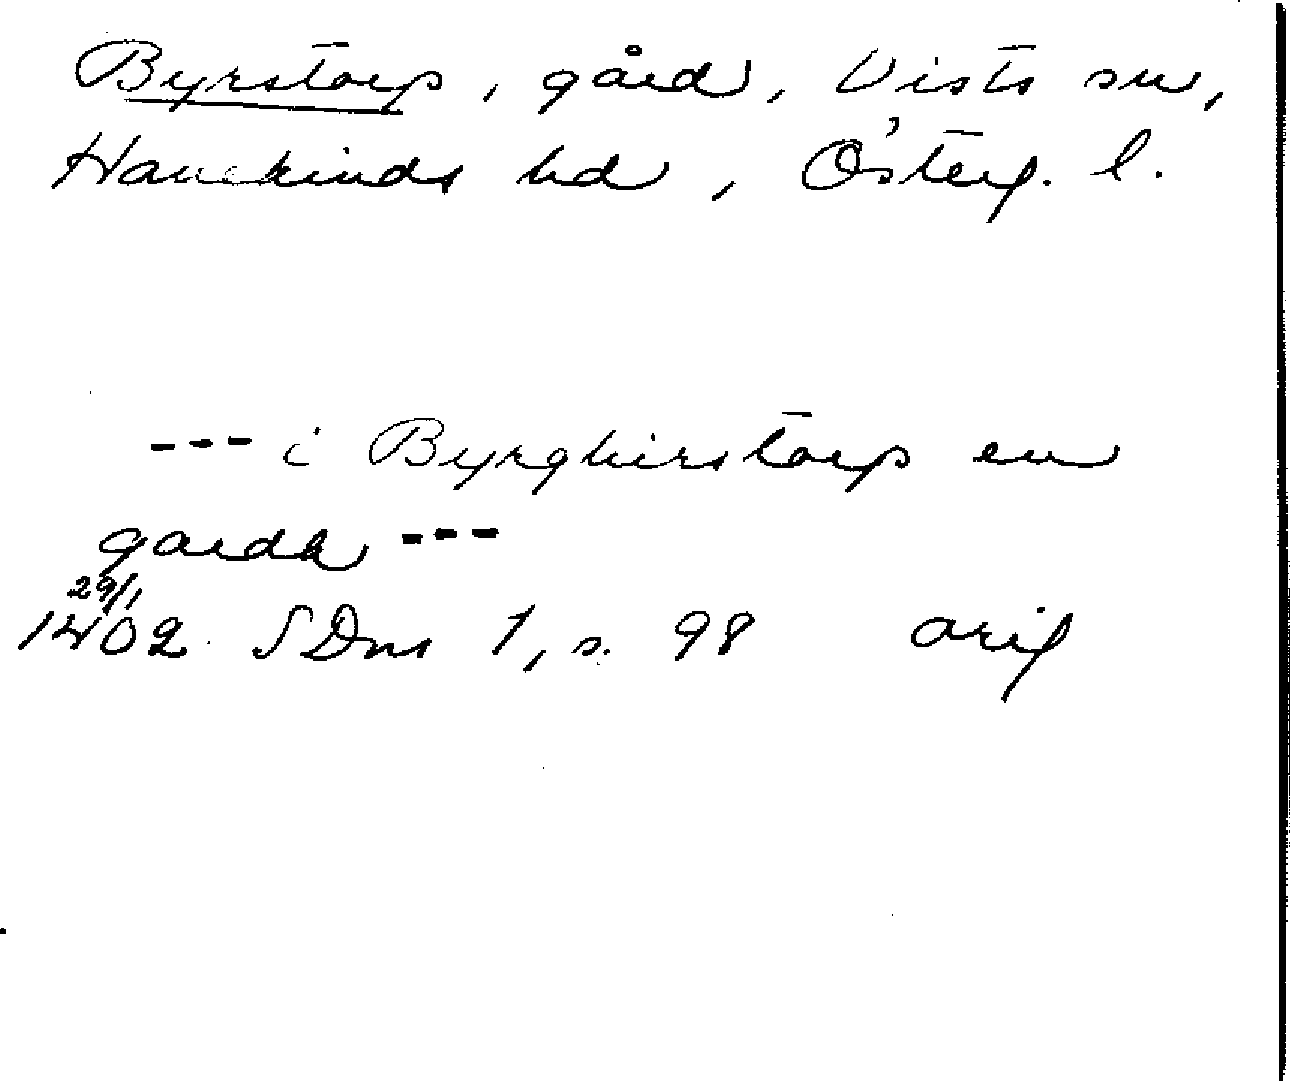 Byrstorp, gård, Vists sn,
Hanekinds hd, Österg. l.
--- i Byrghirstorp en
gardh ---
29/1
1402 SDns 1, s. 98 orig